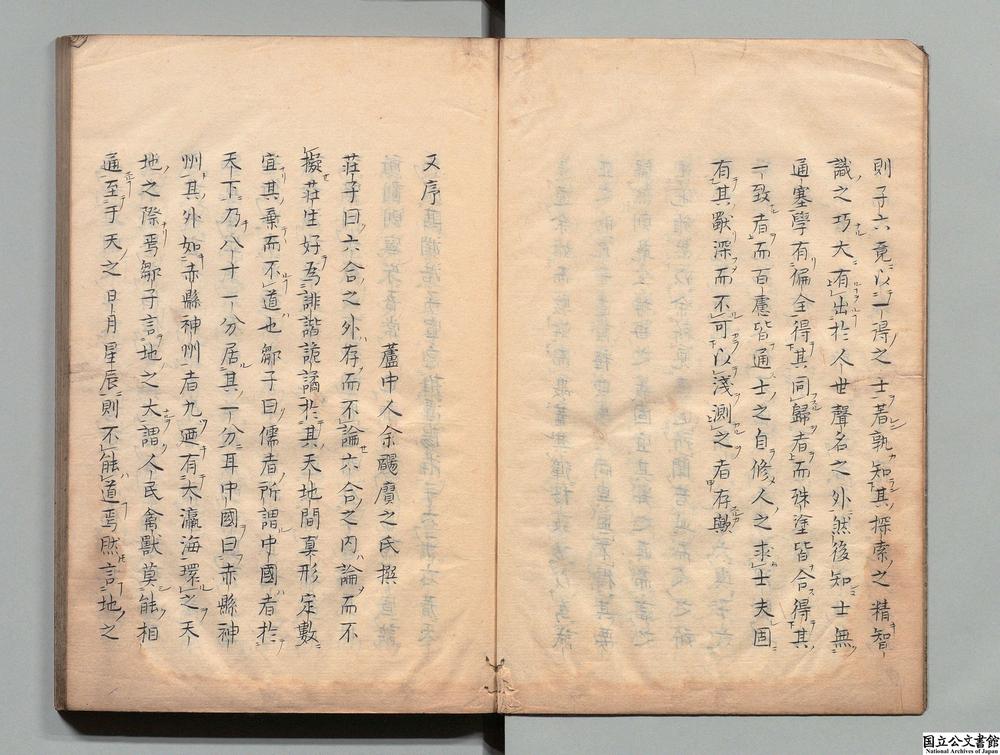 則子六竟以一得之士者孰知其探索之精智
識之巧大有出於人世聲名之外然後知士無
通塞學有偏全得其同歸者而殊塗皆合得其
一致者而百慮皆通士之自修人之求士夫固
有其獻深而不可以淺測之者存與
又序
蘆中人余颺賡之氏撰
莊子曰六合之外存而不論六合之内論而不
擬莊生好為誹諧詭譎於其天地間真形定數
宜其棄而不道也鄒子曰儒者所謂中國者於
天下乃八十一分居其一分耳中國曰赤縣神
州其外如赤縣神州者九迺有大瀛海環之天
地之際焉鄒子言地之大謂人民禽獸莫能相
通至于天之日月星辰則不能道焉然言地之
国立公文書館
National Archives of Japan